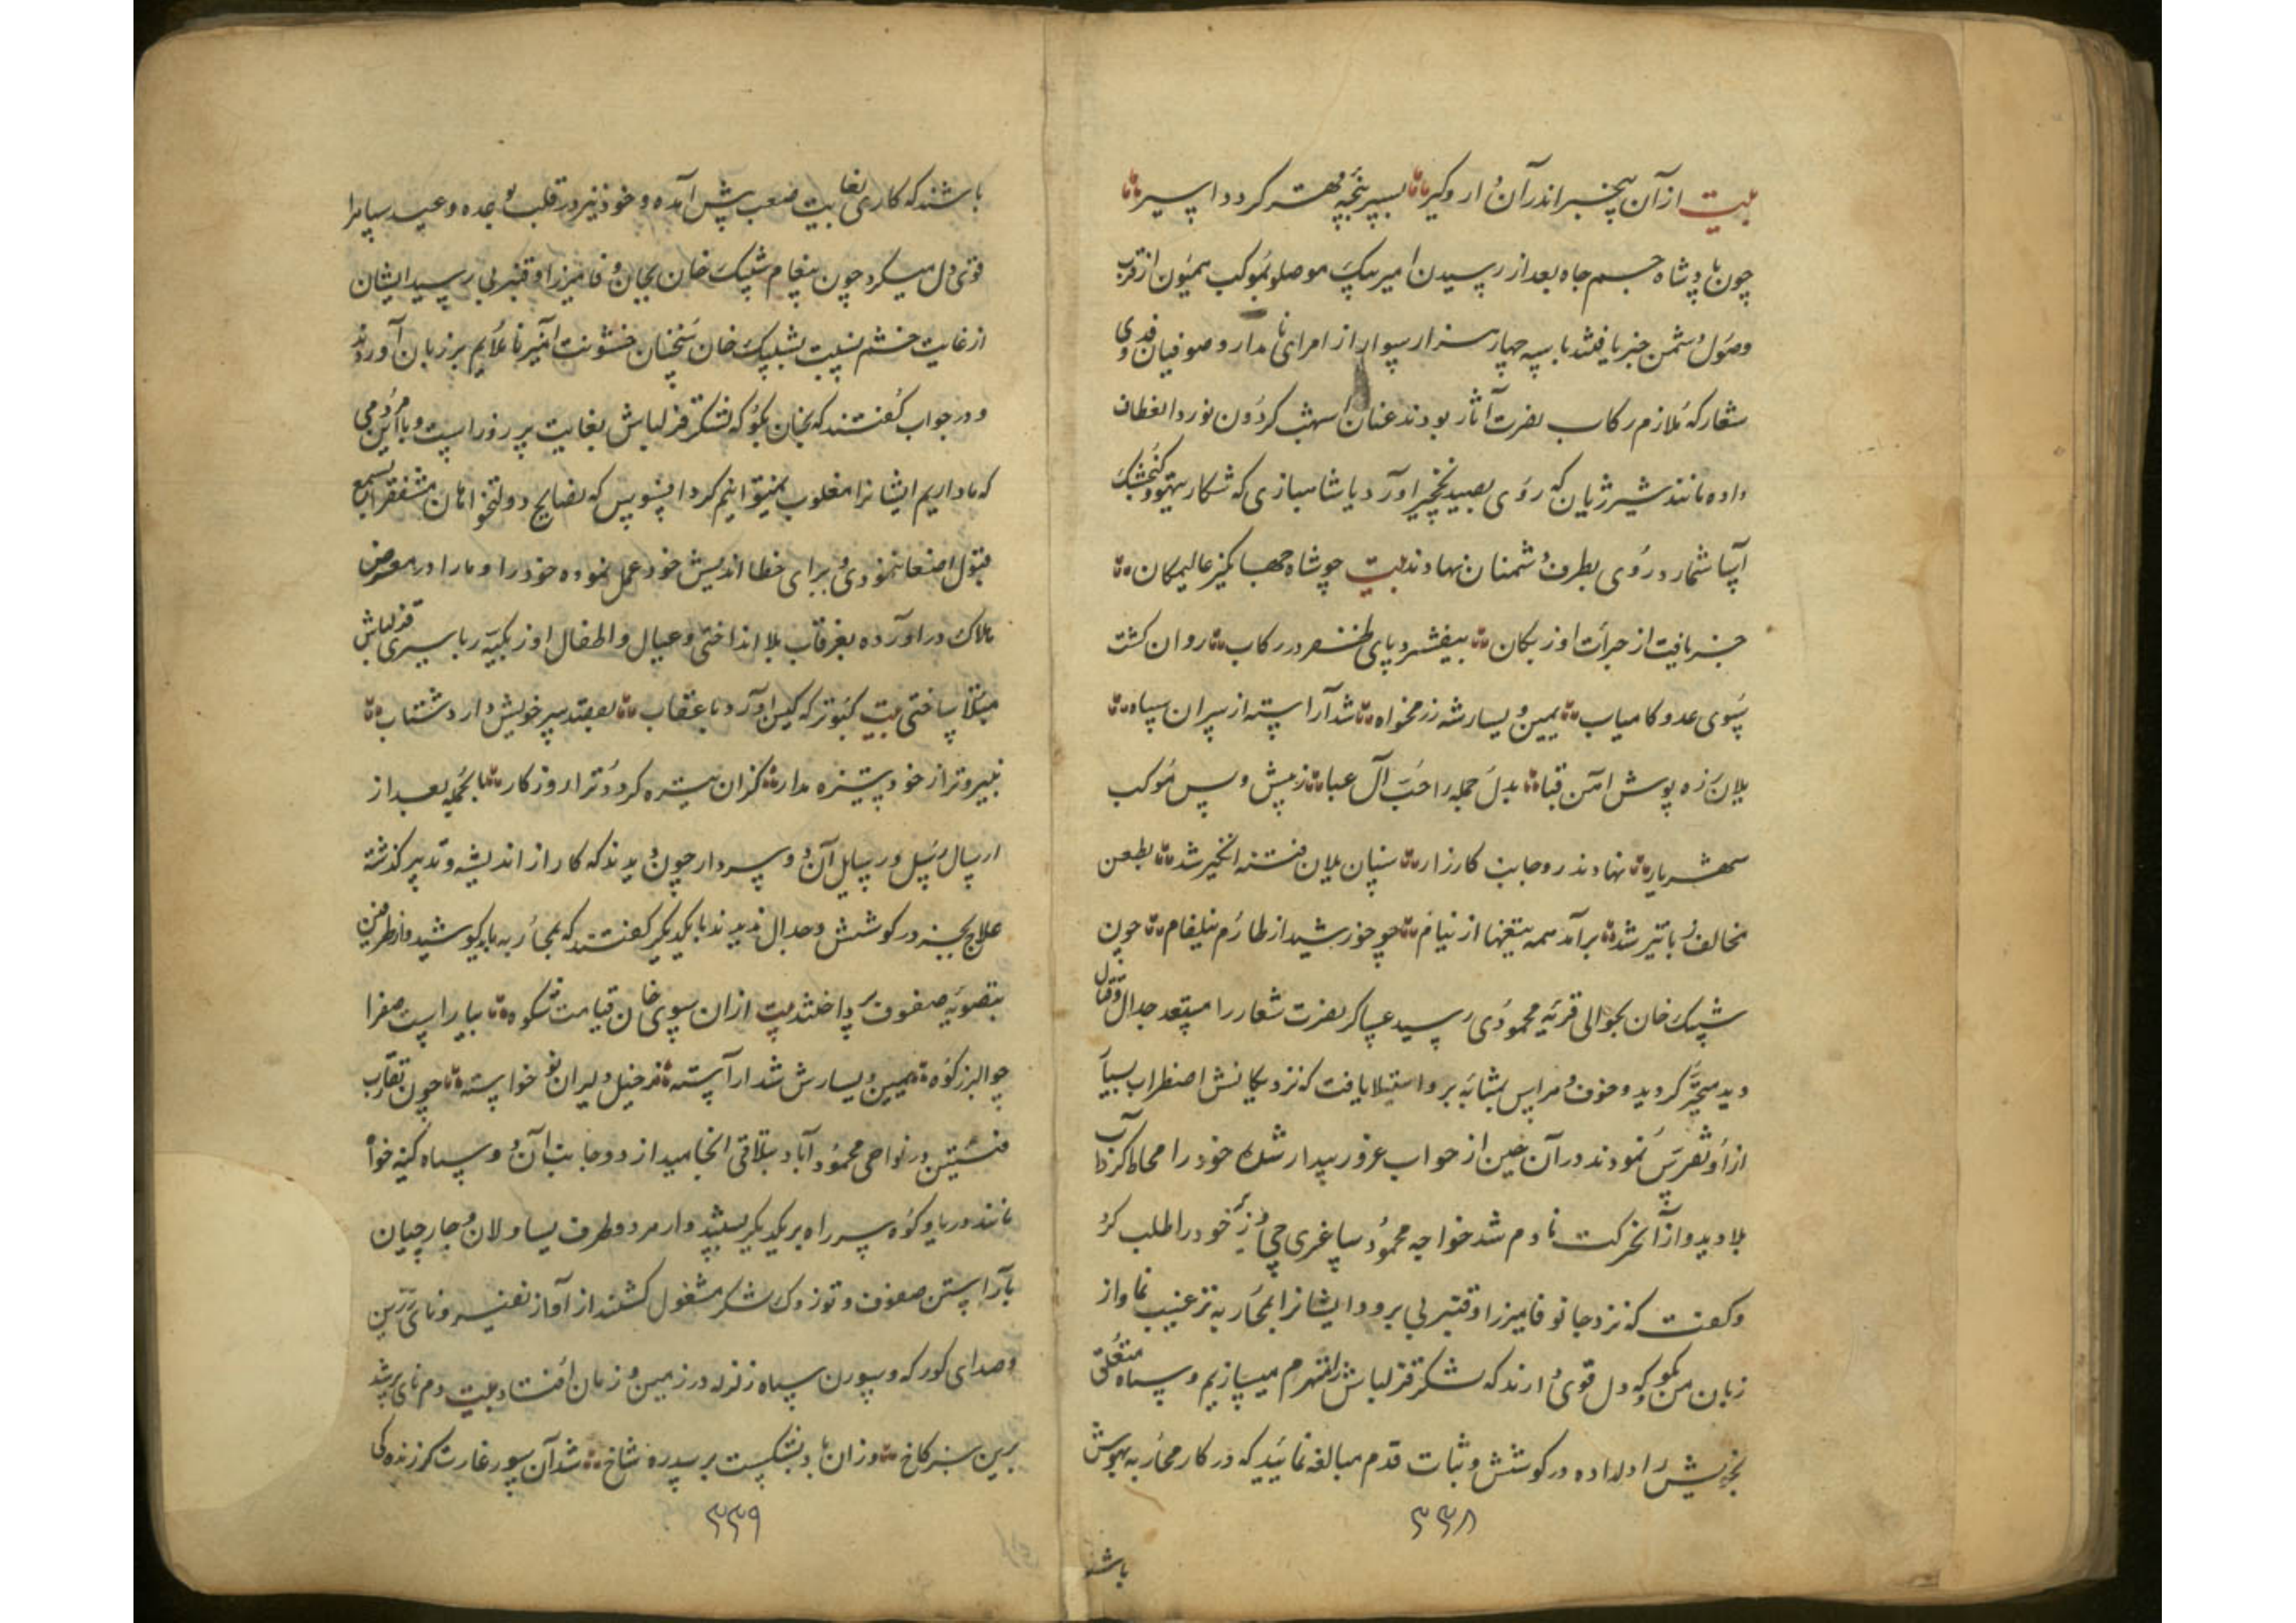 بیت از آن بیخبر اندر آن دار و گیر بسر پنجه مهتر گردد اسیر
چون پادشاه جم جاه بعد از رسیدن امیر بیک موصلو بموکب همیون از قرب
وصول دشمن خبر یافتند با سه چهار هزار سوار از امرای نامدار و صوفیان فدوی
شعار که ملازم رکاب نصرت آثار بودند عنان اسهب گردون نورد انعطاف
داده مانند شیر ژیان که روی بصید نخچیر آورد یا شاهبازی که شکار تیهو و گنجشک
آسا شمارد روی بطرف دشمنان نهادند بیت چو شاه جهانگیر عالیمکان
خبر یافت از جرأت اوزبکان بیفشرد پای ظفر در رکاب روان گشت
سوی عدو کامیاب یمین و یسار شه رزمخواه شد آراسته از سران سپاه
یلان زره پوش آهن قبا بدل جمله را حب آل عبا ز پیش و پس موکب
شهریار نهادند رو جانب کارزار سنان یلان فتنه انگیز شد بطعن
مخالف زبان تیز شد برآمد همه تیغها از نیام چو خورشید از طارم نیلفام چون
شیبک خان بحوالی قریه محمودی رسید عساکر نصرت شعار را مستعد جدال و قتال
دید متحیر گردید و خوف و هراس بمثابه بر او استیلا یافت که نزدیکانش اضطراب بسیار
از او تفرس نمودند در آن حین از خواب غرور بیدار شده خود را محاط گرداب
بلا دید و از آن حرکت نادم شد خواجه محمود ساغرچی وزیر خود را طلب کرد
و گفت که نزد جان وفا میرزا و قنبر بی برو و ایشانرا بمحاربه ترغیب نما و از
زبان من بگو که دل قوی دارند که لشکر قزلباش را منهزم میسازیم و سپاه متعلق
بخویش را دلداده در کوشش و ثبات قدم مبالغه نمائید که در کار محاربه بهوش
۳۳۸
باشند
باشند که کاری بغایت صعب پیش آمده و خود نیز در قلب بوجده و عید سپاه را
قوی دل میکرد چون پیغام شیبک خان بجان وفا میرزا و قنبر بی رسید ایشان
از غایت خشم نسبت بشیبک خان سخنان خشونت آمیز ناملایم بر زبان آوردند
و در جواب گفتند که بخان بگو که لشکر قزلباش بغایت پر زور است و با این مردمی
که ما داریم ایشانرا مغلوب نمیتوانیم کرد افسوس که نصایح دولتخواهان مشفق را بسمع
قبول اصغا ننمودی و برای خطا اندیش خود عمل نموده خود را و ما را در معرض
هلاک در آورده بغرقاب بلا انداختی و عیال و اطفال اوزبکیه را باسیری قزلباش
مبتلا ساختی بیت کبوتر که کین آورد با عقاب بقصد سر خویش دارد شتاب
نیروتر از خود ستیزه مدار کزان تیره گردد ترا روزکار بالجمله بعد از
ارسال رسل و رسایل آن دو سردار چون دیدند که کار از اندیشه و تدبیر گذشته
علاج بجز در کوشش و جدال ندیدند با یکدیگر گفتند که بمحاربه باید کوشید و از طرفین
بتصویه صفوف پرداختند بیت از ان سوی خان قیامت شکوه بیاراست صف را
چو البرز کوه یمین و یسارش شد آراسته ز خیل دلیران نو خواسته چون تقارب
فئتین در نواحی محمود آباد بتلاقی انجامید از دو جانب آن دو سپاه کینه خواه
مانند دریا و کوه سر راه بر یکدیگر بستند و از هر دو طرف یساولان و جارچیان
بآراستن صفوف و توزوک لشکر مشغول گشتند از آواز نفیر و نای زرین
و صدای کورکه و سورن سپاه زلزله در زمین و زمان افتاد بیت دم نای برشد
برین سبز کاخ وزان باد بشکست بر سدره شاخ شد آن سور غارتگر زندگی
۳۳۹